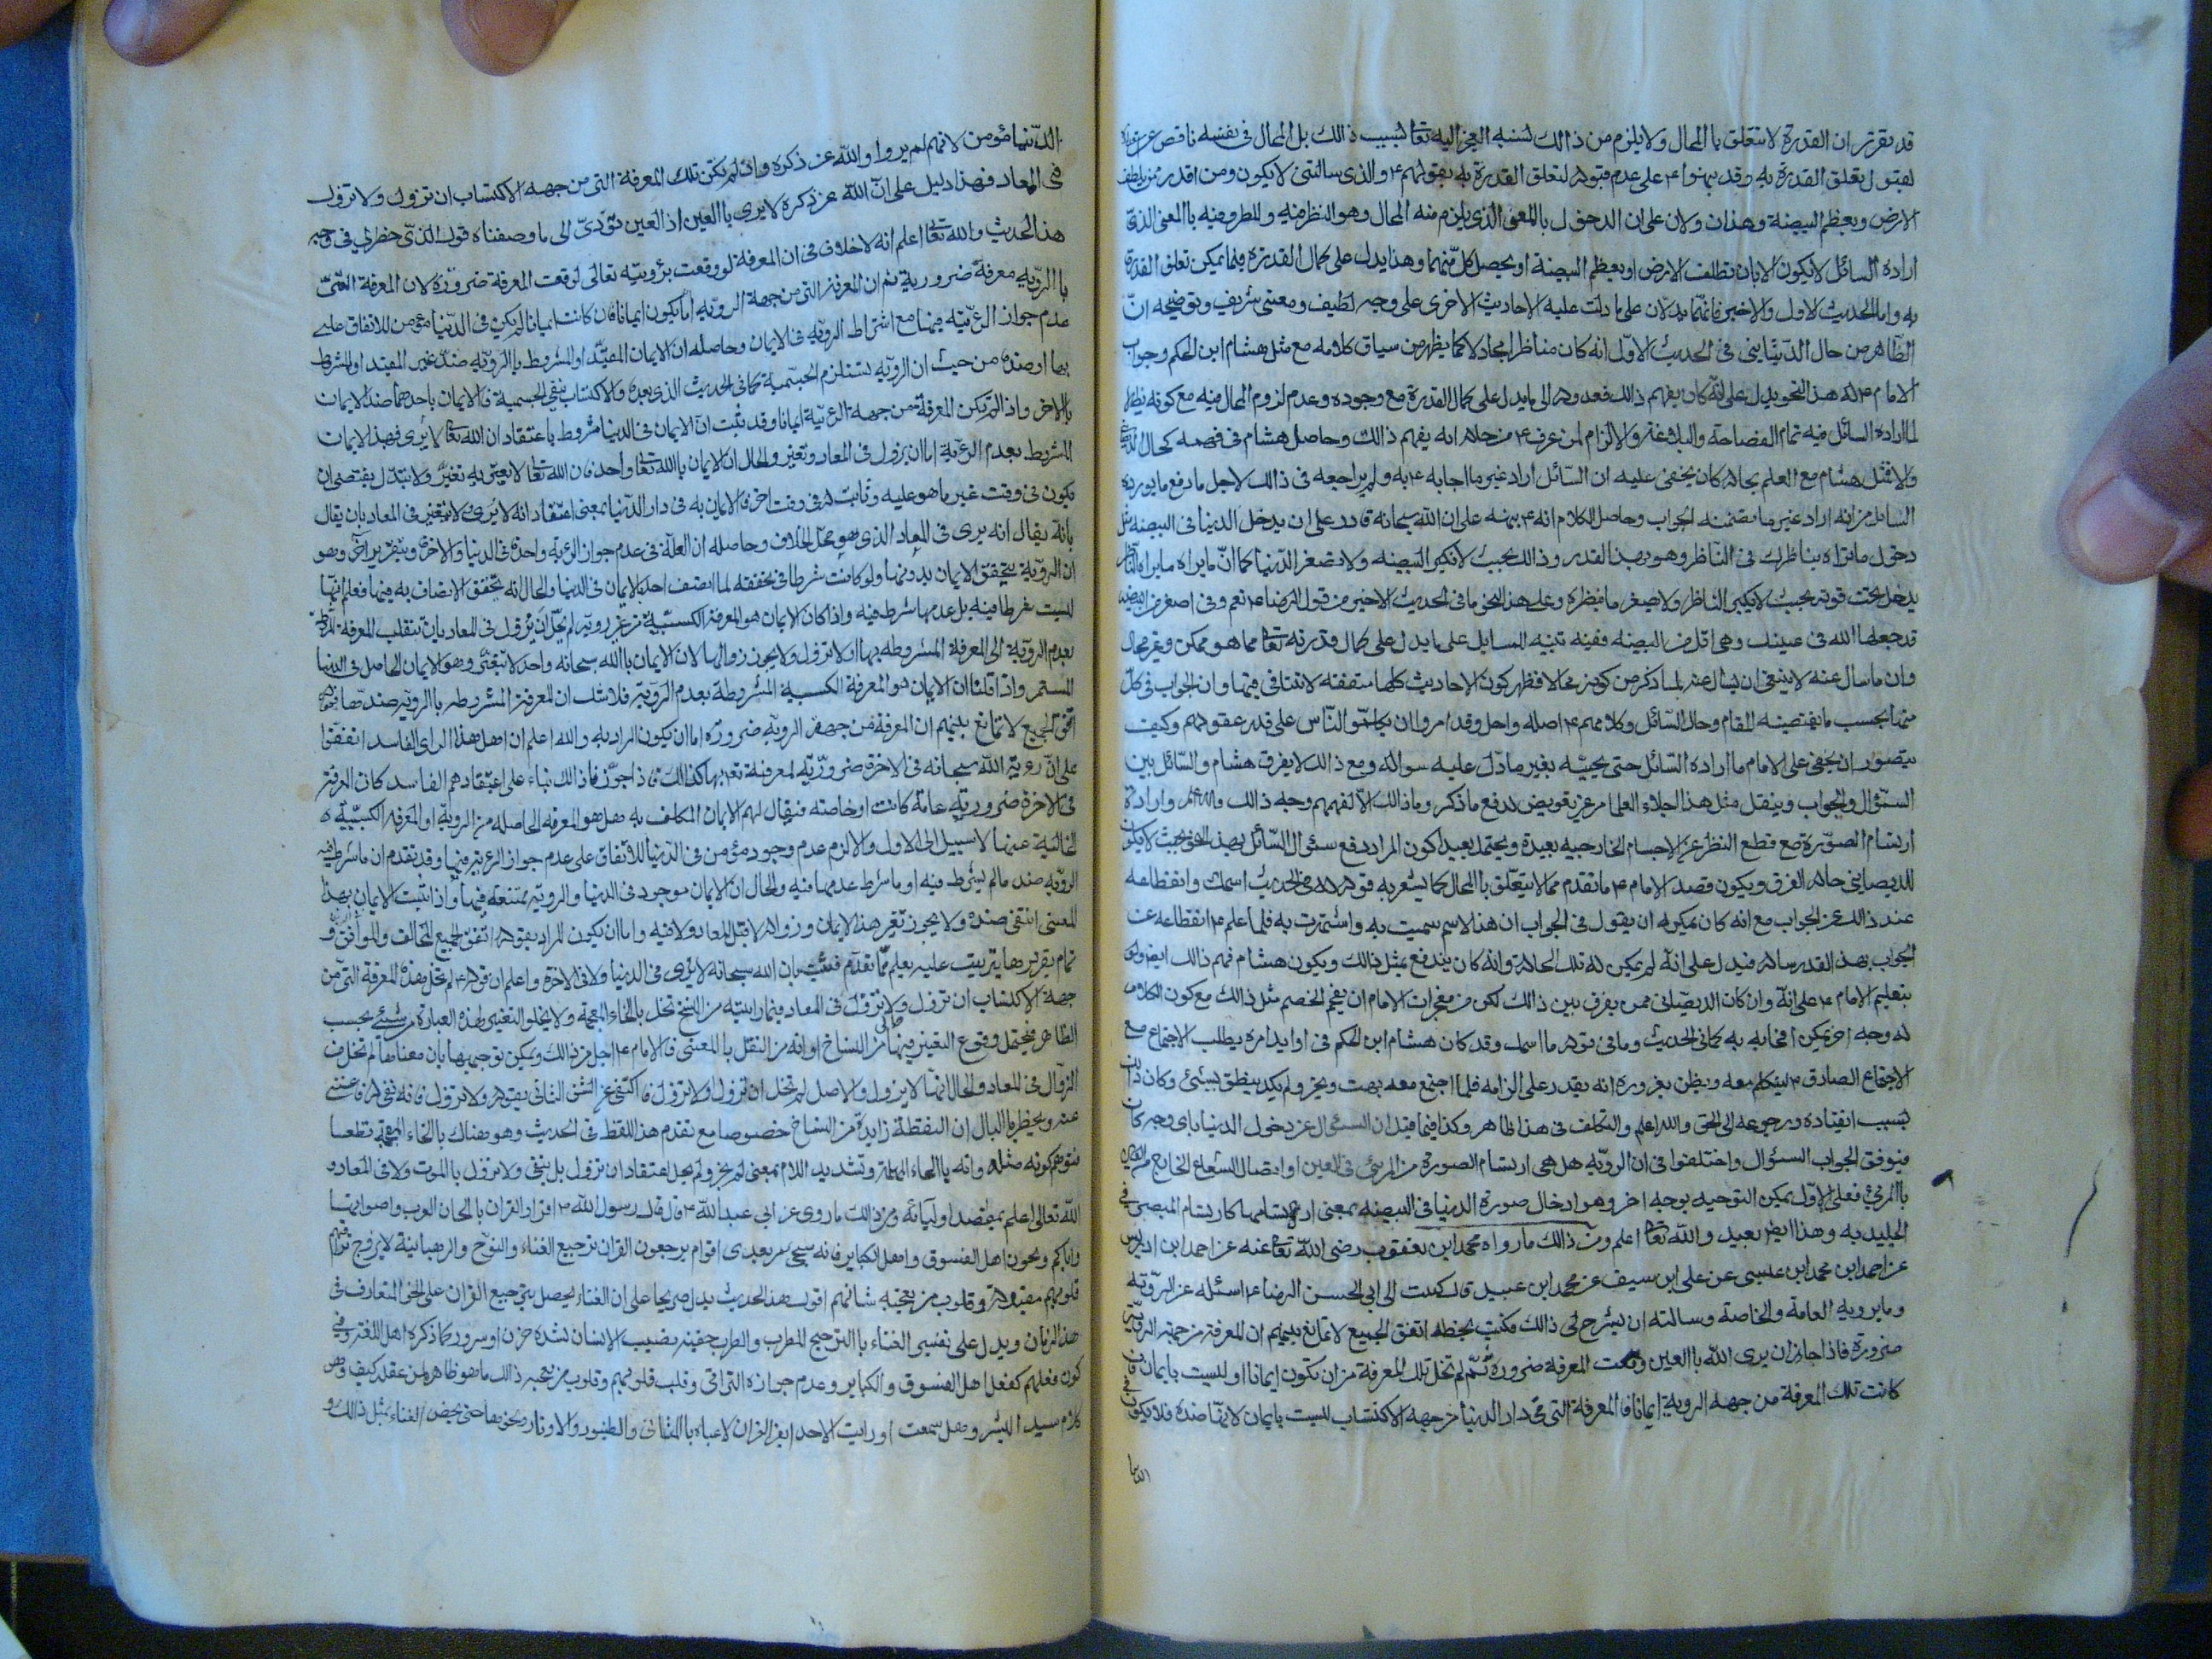 قد تقرر ان القدرة لا تتعلق باالمحال ولا يلزم من ذالك نسبه العجز اليه تعا بسبب ذالك بل المحال فى نفسه ناقص عن
لقبول تعلق القدرة به وقد نبهوا ۴ على عدم قبوله لتعلق القدرة به بقولهم ۴ والذى سالتنى لا يكون ومن اقدر ممن يلطف
الارض ويعظم البيضة وهذان ولان على ان الدخول باالمعنى الذى يلزم منه المحال وهو النظر فيه وللطرفيه باالمعنى الذى
اراده السائل لا يكون الا بان تلطف الارض او يعظم البيضة او يحصل كل منهما وهذا يدل على كمال القدرة فيما يمكن تعلق القدرة
به واما الحديث الاول والاخير فانهما يدلان على ما دلت عليه الاحاديث الاخرى على وجه لطيف ومعنى شريف وتوضيحه ان
الظاهر من حال الديصانى فى الحديث الاول انه كان مناظرا مجادلا كما يظهر من سياق كلامه مع مثل هشام ابن الحكم وجواب
الامام ۴ له هذا النحو يدل على انه كان يفهم ذالك فعدوله الى ما يدل على كمال القدرة مع وجوده وعدم لزوم المحال فيه مع كونه
لما اراده السائل فيه تمام الفصاحة والبلاغة والالزام لمن عرف ۴ من حاله انه يفهم ذالك وحاصل هشام فى فهمه كحال
والا فمثل هشام مع العلم بحاله كان يخفى عليه ان السائل اراد غير ما اجابه ۴ به ولم يراجعه فى ذالك لاجل ما دفع ما يورده
السائل من انه اراد غير ما تضمنه الجواب وحاصل الكلام انه ۴ نبهه على ان الله سبحانه قادر على ان يدخل الدنيا فى البيضه مثل
دخول ما تراه بناظرك فى الناظر وهو بهذا القدر وذالك بحيث لا تكبر البيضه ولا تصغر الدنيا كما ان ما يراه
يدخل تحت قوته بحيث لا يكبر الناظر ولا يصغر ما ينظره وعلى هذا النحو ما فى الحديث الاخير من قول الرضا ۴ نعم وفى اصغر من البيضه
قد جعلها الله فى عينك وهى اقل من البيضه ففيه تنبيه السايل على ما يدل على كمال قدرته تعا مما هو ممكن وغير محال
وان ما سال عنه لا ينبغى ان يسال عنه لما ذكر من كونه محالا فظهر كون الاحاديث كلها متفقه لا تنافى فيها وان الجواب فى كل
منها بحسب ما يقتضيه المقام وحال السائل وكلامهم ۴ اصله واحد وقد امروا ان يكلموا الناس على قدر عقولهم وكيف
يتصور ان يخفى على الامام ما اراده السائل حتى يجيبه بغير ما دل عليه سواله ومع ذالك لا يفرق هشام والسائل بين
السؤال والجواب وينقل مثل هذا اجلاء العلما من غير تعويض لدفع ما ذكر وما ذالك الا لفهمهم وجه ذالك والله اعلم وارادة
ارتسام الصورة مع قطع النظر عن الاجسام الخارجيه بعيدة ويحتمل بعيدا كون المراد دفع سؤال السائل بهذ النحو بحيث لا يكون
للديصانى حاله الفرق ويكون قصد الامام ۴ ما تقدم مما لا يتعلق باالمحال كما يشعر به قوله له فى الحديث اسمك وانقطاعه
عند ذالك عن الجواب مع انه كان يمكنه ان يقول فى الجواب ان هذا الاسم سميت به واشتهرت به فلما علم ۴ انقطاعه عن
الجواب بهذ القدر ساله فيدل على انه لم يكن له تلك الحالة وانه كان يندفع بمثل ذالك ويكون هشام فهم ذالك ايضا
بتعليم الامام ۴ على انه وان كان الديصانى ممن يفرق بين ذالك لكن من معجزات الامام ان يفحم الخصم مثل ذالك مع كون الكلام
له وجه اخر يمكن افحامه به كما فى الحديث وما فى قوله ما اسمك وقد كان هشام ابن الحكم فى اوايل امره يطلب الاجتماع مع
الاجتماع الصادق ۴ ليتكلم معه ويظن بغروره انه يقدر على الزامه فلما اجتمع معه بهت وتحير ولم يكد ينطق بشئ وكان ذالك
بسبب انقياده ورجوعه الى الحق والله اعلم والتكلف فى هذا ظاهر وكذا فيما قيد ان السؤال عن دخول الدنيا باى وجه كان
فيوفق الجواب السؤال واختلفوا فى ان الروية هل هى ارتسام الصورة من المرئى فى العين او اتصال الشعاع الخارج من العين
باالمرئى فعلى الاول يمكن التوجيه بوجه اخر وهو ادخال صورة الدنيا فى البيضه بمعنى ارتسامها كارتسام المبصر فى
الجليديه وهذا ايضا بعيد والله تعا اعلم ومن ذالك ما رواه محمد ابن يعقوب رضى الله تعا عنه عن احمد ابن ادريس
عن احمد ابن محمد ابن عيسى عن على ابن سيف عن محمد ابن عبيد قال كتبت الى ابى الحسن الرضا ۴ اسئله عن الروية
وما يرويه العامة والخاصة وسالته ان يشرح لى ذالك فكتب بخطه اتفق الجميع لا تمانع بينهم ان المعرفة من جهة الروية
ضرورة فاذا جاز ان يرى الله باالعين وقعت المعرفة ضرورة ثم لم تخل تلك المعرفة من ان تكون ايمانا او ليست بايمان فان
كانت تلك المعرفة من جهة الروية ايمانا فاالمعرفة التى فى دار الدنيا من جهة الاكتساب ليست بايمان لانها ضده فلا يكون
الدنيا
الدنيا مؤمن لانهم لم يروا والله عز ذكره وان لم تكن تلك المعرفة التى من جهه الاكتساب ان تزول ولا تزول
فى المعاد فهذا دليل على ان الله عز ذكره لا يرى باالعين اذ العين تؤدى الى ما وصفناه قول الذى خطر لى فى وجه
هذ الحديث والله تعا اعلم انه لا خلاف فى ان المعرفة لو وقعت برؤيته تعالى لوقعت المعرفة ضرورة لان المعرفة التى
باالروية معرفة ضرورية ثم ان المعرفة التى من جهة الروية اما يكون ايمانا فان كانت ايمانا لم يكن فى الدنيا مؤمن للاتفاق على
عدم جواز الرؤية فيها مع اشتراط الروية فى الايمان وحاصله ان الايمان المقيد او المشروط باالروية ضد غير المقيد او المشروط
بها او ضده من حيث ان الروية تستلزم الجسمية كما فى الحديث الذى بعده والاكتساب ينفى الجسمية فالايمان باحدهما ضد الايمان
باالاخر واذا لم تكن المعرفة من جهة الرؤية ايمانا وقد ثبت ان الايمان فى الدنيا مشروط باعتقاد ان الله تعا لا يرى فهذ الايمان
المشروط بعدم الرؤية اما ان يزول فى المعاد وتغير والحال ان الايمان باالله تعا واحد فان الله تعا لا يعتريه تغير ولا تبدل يقتضى ان
يكون فى وقت غير ما هو عليه وثابت له فى وقت اخر فالايمان به فى دار الدنيا بمعنى اعتقاد انه لا يرى لا يتغير فى المعاد بان يقال
بانه يقال انه يرى فى المعاد الذى هو محل الخلاف وحاصله ان العلة فى عدم جواز الرؤية واحدة فى الدنيا والاخرة وبتقرير اخر وهو
ان الروية يتحقق الايمان بدونها ولو كانت شرطا فى تحققه لما اتصف احد باالايمان فى الدنيا والحال انه يتحقق الاتصاف به فيها فعلم انها
ليست شرطا فيه بل عدمها شرط فيه واذا كان الايمان هو المعرفة الكسبية من غير روية لم يخل ان يزول فى المعاد بان تنقلب المعرفة
بعدم الروية الى المعرفة المشروطه بها اولا تزول ولا يجوز زوالها لان الايمان باالله سبحانه واحد لا يتغير وهو الايمان الحاصل فى الدنيا
المستمر واذا قلنا ان الايمان هو المعرفة الكسبية المشروطة بعدم الروية فلا شك ان المعرفة المشروطه باالروية ضدها
اتفق الجميع لا تمانع بينهم ان المعرفة من جهة الروية ضرورة اما ان يكون المراد به والله اعلم ان اهل هذا الراى الفاسد اتفقوا
على ان رؤية الله سبحانه فى الاخرة ضرورية لمعرفته تعا بها كذالك فاذا جوز فاذالك بناء على اعتقادهم الفاسد كان المعرفة
فى الاخرة ضرورية عامة كانت او خاصته فيقال لهم الايمان المكلف به هل هو المعرفه الحاصله من الروية او المعرفه الكسبية
الخالية عنها لا سبيل الى الاول والا لزم عدم وجود مؤمن فى الدنيا للاتفاق على عدم جواز الرؤية فيها وقد تقدم ان ما شرط فيه
الروية ضد ما لم يشرط فيه او ما شرط عدمها فيه والحال ان الايمان موجود فى الدنيا والروية ممتنعة فيها واذا ثبت الايمان بهذا
المعنى انتفى ضده ولا يجوز تغير هذ الايمان وزواله لا قبل المعاد ولا فيه واما ان يكون المراد بقوله اتفق الجميع المخالف والموافق و
تمام تقريرها يترتب عليه يعلم مما تقدم فثبت بان الله سبحانه لا يرى فى الدنيا ولا فى الاخرة واعلم ان قوله ۴ لم تخل هذه المعرفة التى من
جهة الاكتساب ان تزول ولا تزول فى المعاد فيما رايته من النسخ تخل باالخاء المعجمة ولا يخلو التعبير بهذه العبارة من شيئ بحسب
الظاهر فيحتمل وقوع التغير فيها من النساخ او انه من النقل باالمعنى فالامام ۴ اجل من ذالك ويمكن توجيهها بان معناها لم تخل من
الزوال فى المعاد والحال انها لا يزول والاصل لم تخل ان تزول او لا تزول فاكتفى عن الشق الثانى بقوله ولا تزول فانه نفى له فاغنى
عنه ويخطر باالبال ان النقطة زايدة من النساخ خصوصا مع تقدم هذ اللفظ فى الحديث وهو هناك باالخاء المعجمة قطعا
فتوهم كونه مثله وانه باالحاء المهملة وتشديد اللام بمعنى لم يجز ولم يحل اعتقاد ان تزول بل ينفى ولا تزول باالموت ولا فى المعاد و
الله تعالى اعلم بمقصد اوليائه ومن ذالك ما روى عن ابى عبد الله ۴ قال قال رسول الله ۳ اقراو القران باالحان العرب واصواتها
واياكم ولحون اهل الفسوق واهل الكباير فانه سيجئ من بعدى اقوام يرجعون القران ترجيع الغناء والنوح والرهبانية لا يجوز تراقيهم
قلوبهم مقلوبة وقلوب من يعجبه شانهم اقول هذ الحديث يدل صريحا على ان الغنا يحصل بترجيع القران على النحو المتعارف فى
هذ الزمان ويدل على تفسير الغناء باالترجيع المطرب والطرب خفيه تصيب الانسان لشدة حزن او سرور كما ذكره اهل اللغة وفى
كون فعلهم كفعل اهل الفسوق والكباير وعدم جوازه التراقى وقلب قلوبهم وقلوب من يعجبه ذالك ما هو ظاهر لمن عقل كيف وهو
كلام سيد البشر وهل سمعت او رايت الاحد ايقر القران لاعباه باالمثانى والطنبور والاوتار ونحوها حتى يخص الغناء بمثل ذالك و